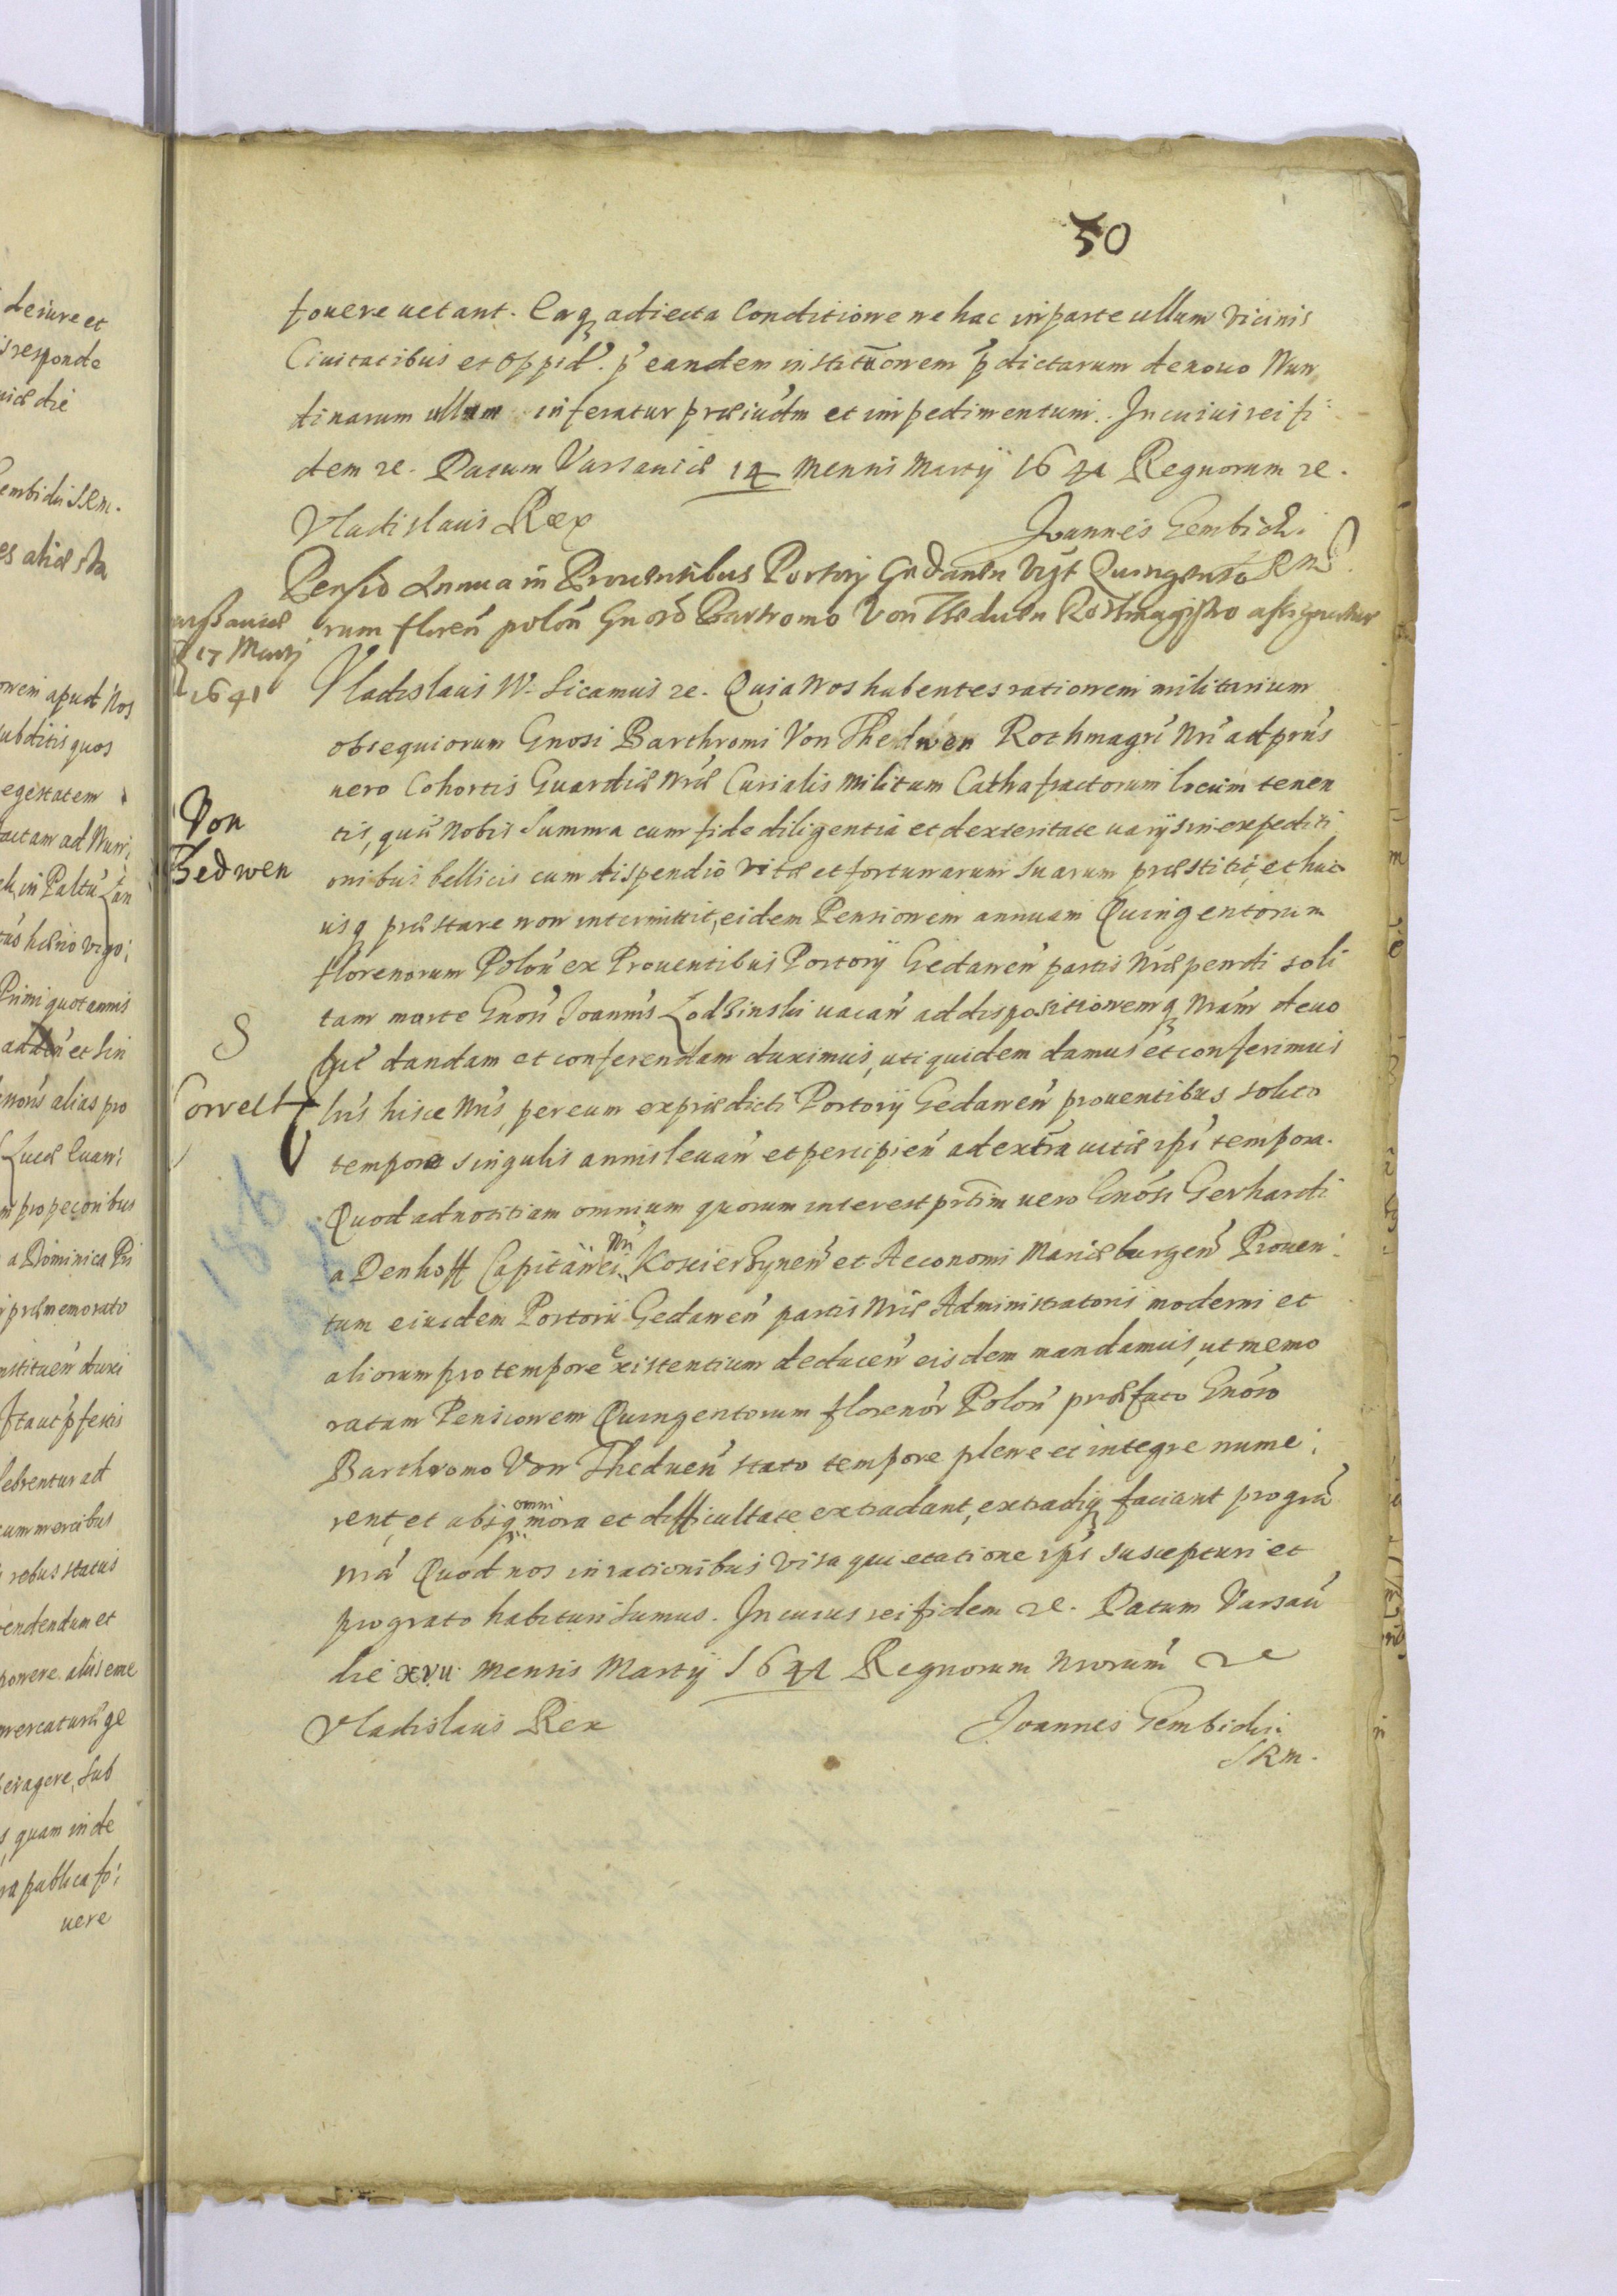 50
fouere uetant. Eaq adiecta Conditione ne hac in parte ullum vicinis
Ciuitatibus et Oppid. p eandem institucionem p dictarum denouo Nun
dinarum ullum inferatur præiudm et impedimentum. In cuius rei fi
dem etc. Datum Varsauiæ 14 Mensis Martij 1641 Regnorum etc.
Vladislaus Rex
Joannes Gembicki
SRM
Pensio Annua in Prouentibus Portorij Gedanen Vizt Quingento
rum floren polon Gnoso Bartromo Von Theduen Rothmagistro assignatur
Warssauiæ
17 Martij
1641
Vladislaus IV. Sicamus etc. Quia Nos habentes rationem militarium
obsequiorum Gnosi Barthromi Von Thedwen Rothmagri Nri ad prns
uero Cohortis Guardiæ Nræ Curialis Militum Cathafractorum locum tenen
Von
Thedwen
tis, quæ Nobis Summa cum fide diligentia et dexteritate uarijs in expediti
onibus bellicis cum dispendio vitæ et fortunarum suarum præstitit, et huc
usq præstare non intermittit, eidem Pensionem annuam Quingentorum
florenorum Polon ex Prouentibus Portorij Gedanen partis Nræ pendi soli
tam morte Gnosi Joannis Lodzinski uacan ad dispositionemq Nram deuo
lut dandam et conferendam duximus, uti quidem damus et conferimus
S
Correct
lris hisce Nris, per eum ex prædicti Portorij Gedanen prouentibus solito
tempore singulis annis leuan et percipien ad extra uitæ ipsi tempora.
Quod ad notitiam omnium quorum interest prtim uero Gnosi Gerhardi
a Denhoff Capitanei Nri Koscierzynen et Aeconomi Mariæburgen Prouen
tum eiusdem Portorii Gedanen partis Nræ Administratoris moderni et
aliorum pro tempore existentium deducen eisdem mandamus, ut memo
ratam Pensionem Quingentorum florenor Polon præfato Gnoso
Barthromo Von Theduen stato tempore plene et integre nume
rent, et absq omni mora et difficultate extradant, extradiq faciant pro gra
nra Quod nos in rationibus visa quietatione ipsi suscepturi et
pro grato habituri sumus. In cuius rei fidem etc. Datum Varsau
die xvii Mensis Martij 1641 Regnorum Nrorum etc
Vladislaus Rex
Joannes Gembicki
SRM.